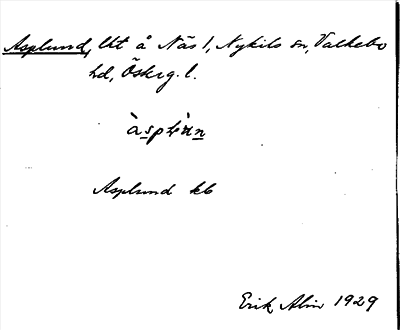 Asplund, Utå Näs 1, Nykils sn, Valkebo
hd, Österg. l.
Asplund kb
Erik Alin 1929